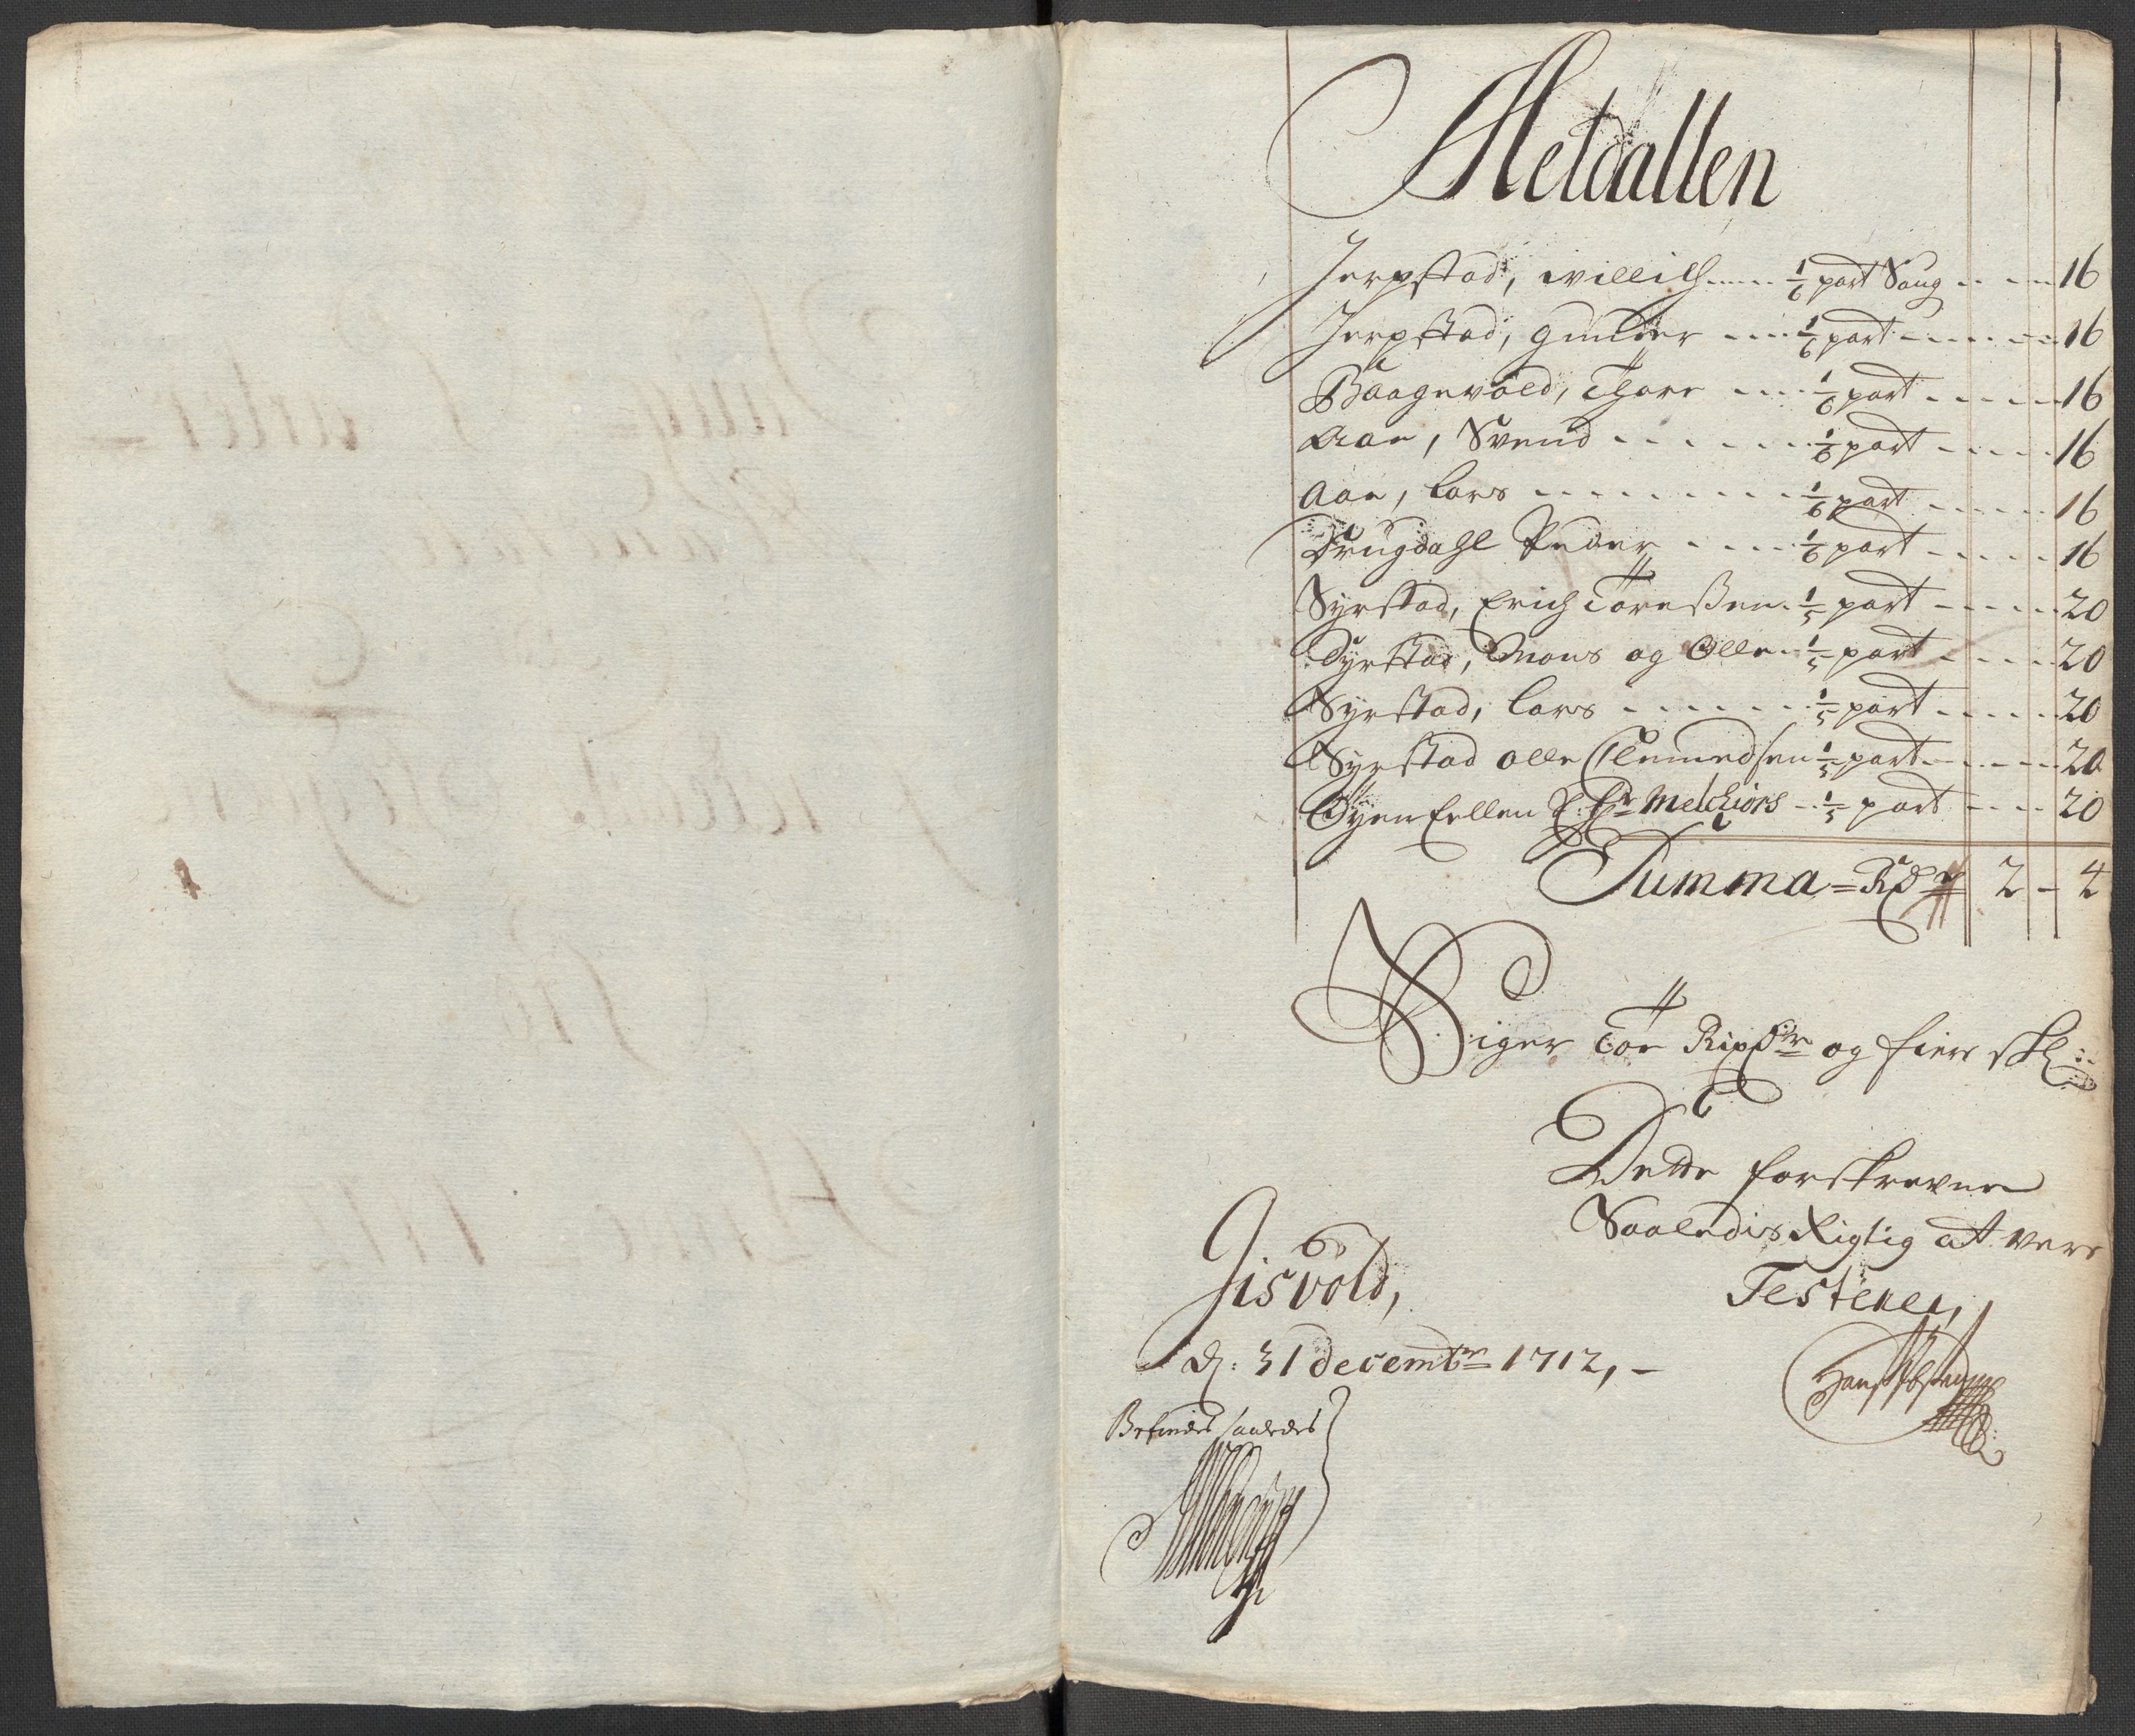 Meldallen
Jerpstad, Willich ..... 1/6 part Saug .. ... 16
Jerpstad, Gunder .... 1/6 part ....... 16
Baagevold, Thore .... 1/6 part ..... 16
Aae, Svend ....... 1/6 part ..... 16
Aae, Lars ......... 1/6 part ...... 16
Drugdahl Peder .... 1/6 part ..... 16
Syrstad, Erich Toreßen. 1/5 part ..... 20
Syrstad, Mons og Olle .. 1/5 part .... 20
Syrstad, Lars ....... 1/5 part ..... 20
Syrstad Olle Clemedsen 1/5 part ..... 20
Øyen Sl. Hr Melchiors .. 1/5 part .... 20
Summa = Rdr 2 - 4
Siger Toe Rixdlr og fiere skl:
Dette forskrefne
Saaledis Rigtig at være
Testerer,
Gisvold,
d: 31 decembr 1712, -
Befindes saaledes